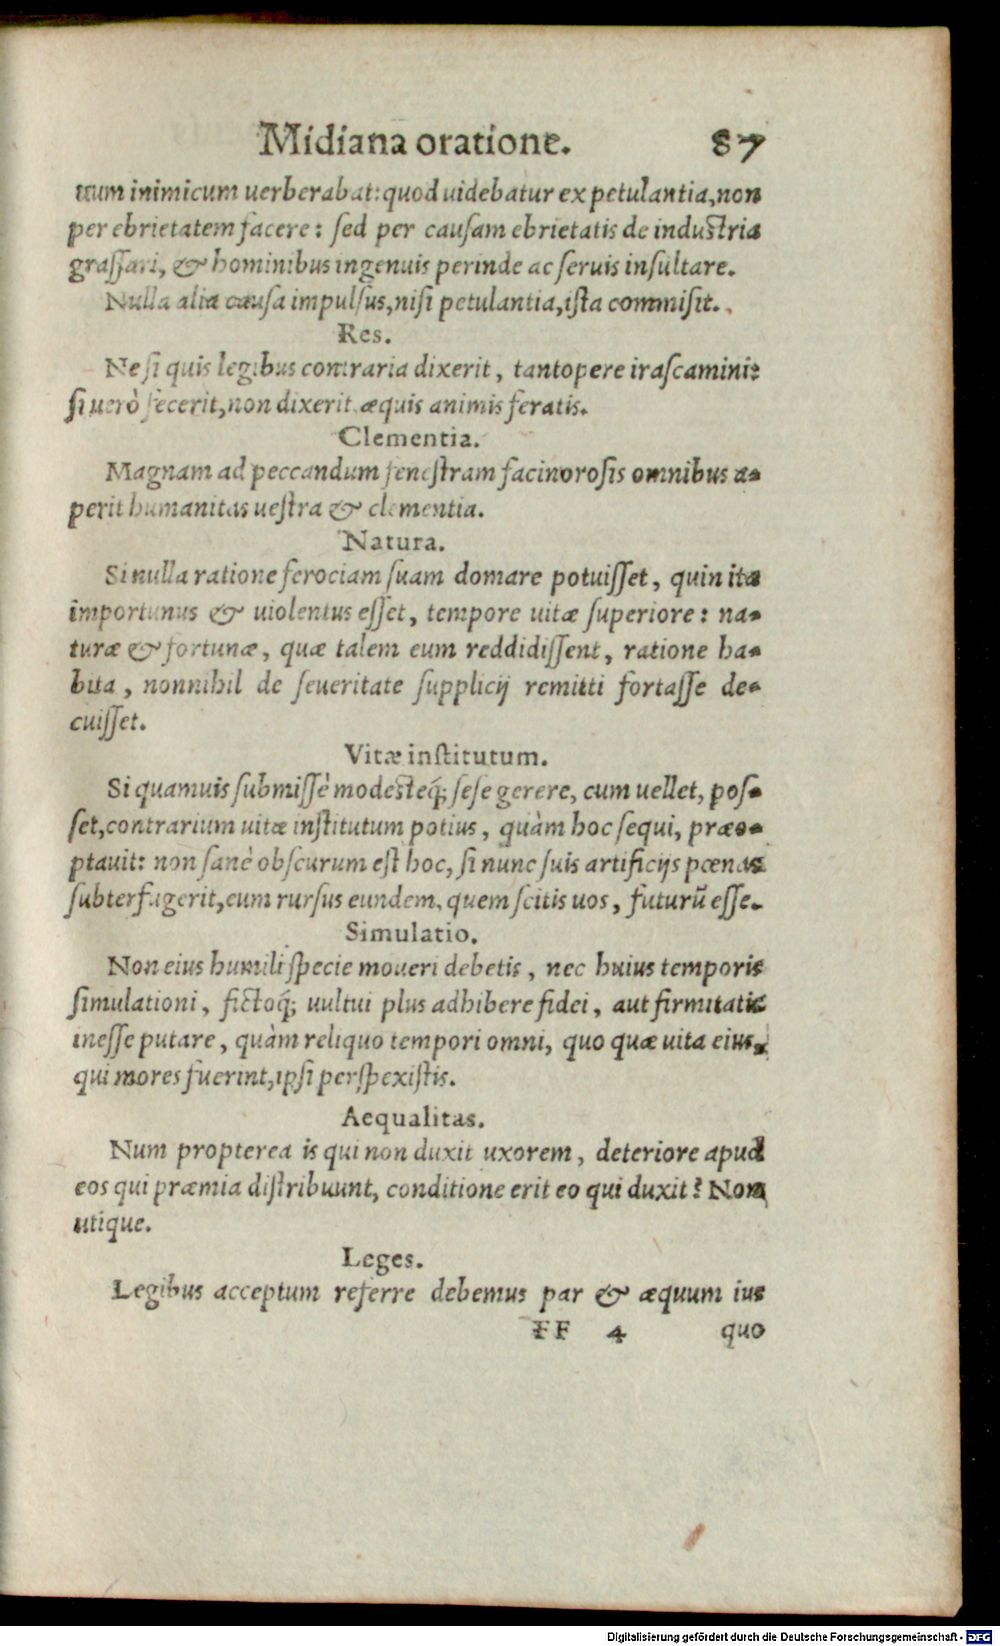 Midiana oratione. 87
uum inimicum uerberabat: quod uidebatur ex petulantia, non
per ebrietatem facere: sed per causam ebrietatis de industria
grassari, & hominibus ingenuis perinde ac seruis insultare.
Nulla alia causa impulsus, nisi petulantia, ista commisit.
Res.
Ne si quis legibus contraria dixerit, tantopere irascamini:
si uerò fecerit, non dixerit. æquis animis feratis.
Clementia.
Magnam ad peccandum fenestram facinorosis omnibus a-
perit humanitas uestra & clementia.
Natura.
Si nulla ratione ferociam suam domare potuisset, quin ita
importunus & uiolentus esset, tempore uitæ superiore: na-
turæ & fortunæ, quæ talem eum reddidissent, ratione ha-
bita, nonnihil de seueritate supplicij remitti fortasse de-
cuisset.
Vitæ institutum.
Si quamuis submissè modesteq́; sese gerere, cum uellet, pos-
set, contrarium uitæ institutum potius, quàm hoc sequi, præo-
ptauit: non sanè obscurum est hoc, si nunc suis artificijs pœnas
subterfugerit, eum rursus eundem, quem scitis uos, futurũ esse.
Simulatio.
Non eius humili specie moueri debetis, nec huius temporis
simulationi, fictoq́; uultui plus adhibere fidei, aut firmitatis
inesse putare, quàm reliquo tempori omni, quo quæ uita eius,
qui mores fuerint, ipsi perspexistis.
Aequalitas.
Num propterea is qui non duxit uxorem, deteriore apud
eos qui præmia distribuunt, conditione erit eo qui duxit? Non
utique.
Leges.
Legibus acceptum referre debemus par & æquum ius
FF 4 quo
Digitalisierung gefördert durch die Deutsche Forschungsgemeinschaft - DFG